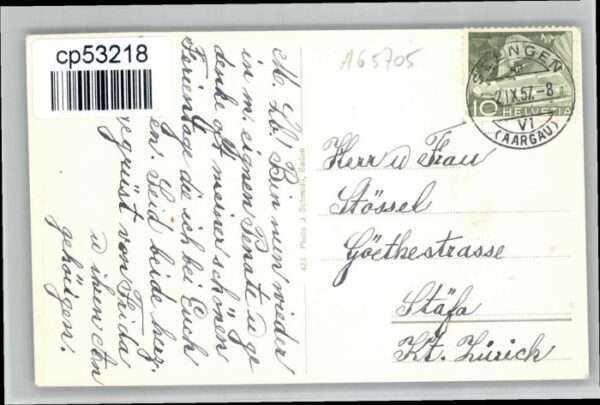 cp53218
AG5705
SEENGEN
21X.57.-8
VI
(AARGAU)
10 HELVETIA
M. Lb! Bin nun wieder
in m. eignen Penate u ge
denke oft meiner schönen
Ferientage die ich bei Euch
Seid beide herz.
egrüst von Frida
u ihren An
gehörigen.
423 Photo J. Schmidli, Baden
Herr u Frau
Stössel
Göethestrasse
Stäfa
Kt. Zürich